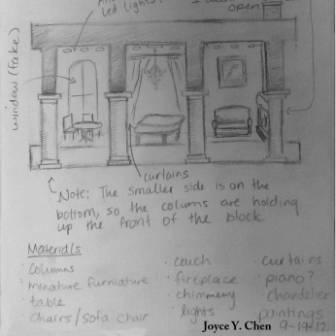 Led lights
open
window (fake)
curtains
Note: The smaller side is on the
bottom, so the colums are holding
up the front of the block
Materials
· columns
· minature furniature
table
chairs/sofa chair
· couch
· fireplace
· chimmeny
lights
curtains
· piano?
chandelier
paintings
9-19-12
Joyce Y. Chen